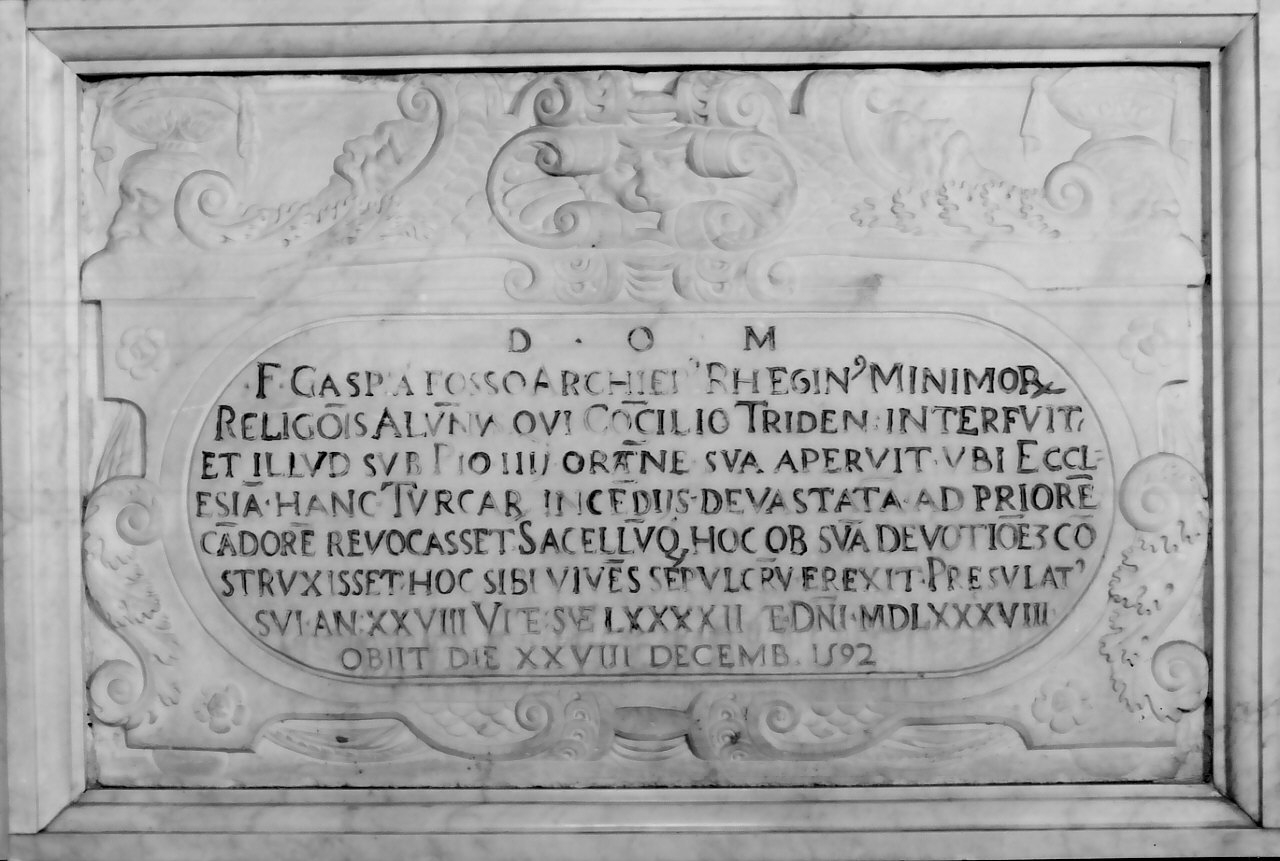 D · O M
·F·GASP·A FOSSO ARCHIEP̄ RHEGIN⁹ MINIMOR
RELIGŌIS ALV̄NV̄ QVI COC̄ILIO TRIDEN: INTERFVIT,
ET ILLVD SVB PIO IIIJ ORATN̄E SVA APERVIT·VBI ECCL-
ESIĀ·HANC TVRCAR INCĒDIJS·DEVASTATĀ·AD PRIORĒ
CĀDORĒ REVOCASSET SACELLV̄Q, HOC OB SVĀ DEVOTIŌEꝫ CO
STRVXISSET·HOC SIBI VIVĒS SEPVLCRV̄ EREXIT·PRESVLAT'
SVI·AN:XXVIIII VITE·SVE LXXXXII E·DN̄I·MDLXXXVIIII·
OBIIT DIE XXVIII DECEMB. 1592